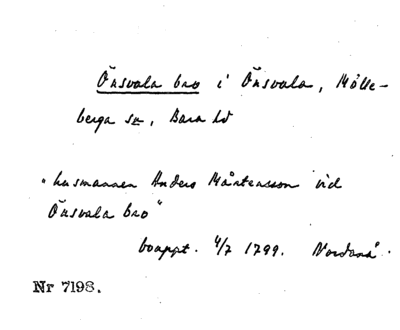 Önsvala bro i Önsvala, Mölle-
berga sn, Bara hd
"husmannen Anders Mårtensson vid
Önsvala bro"
bouppt. 4/7 1799. Nordanå.
Nr 7198.